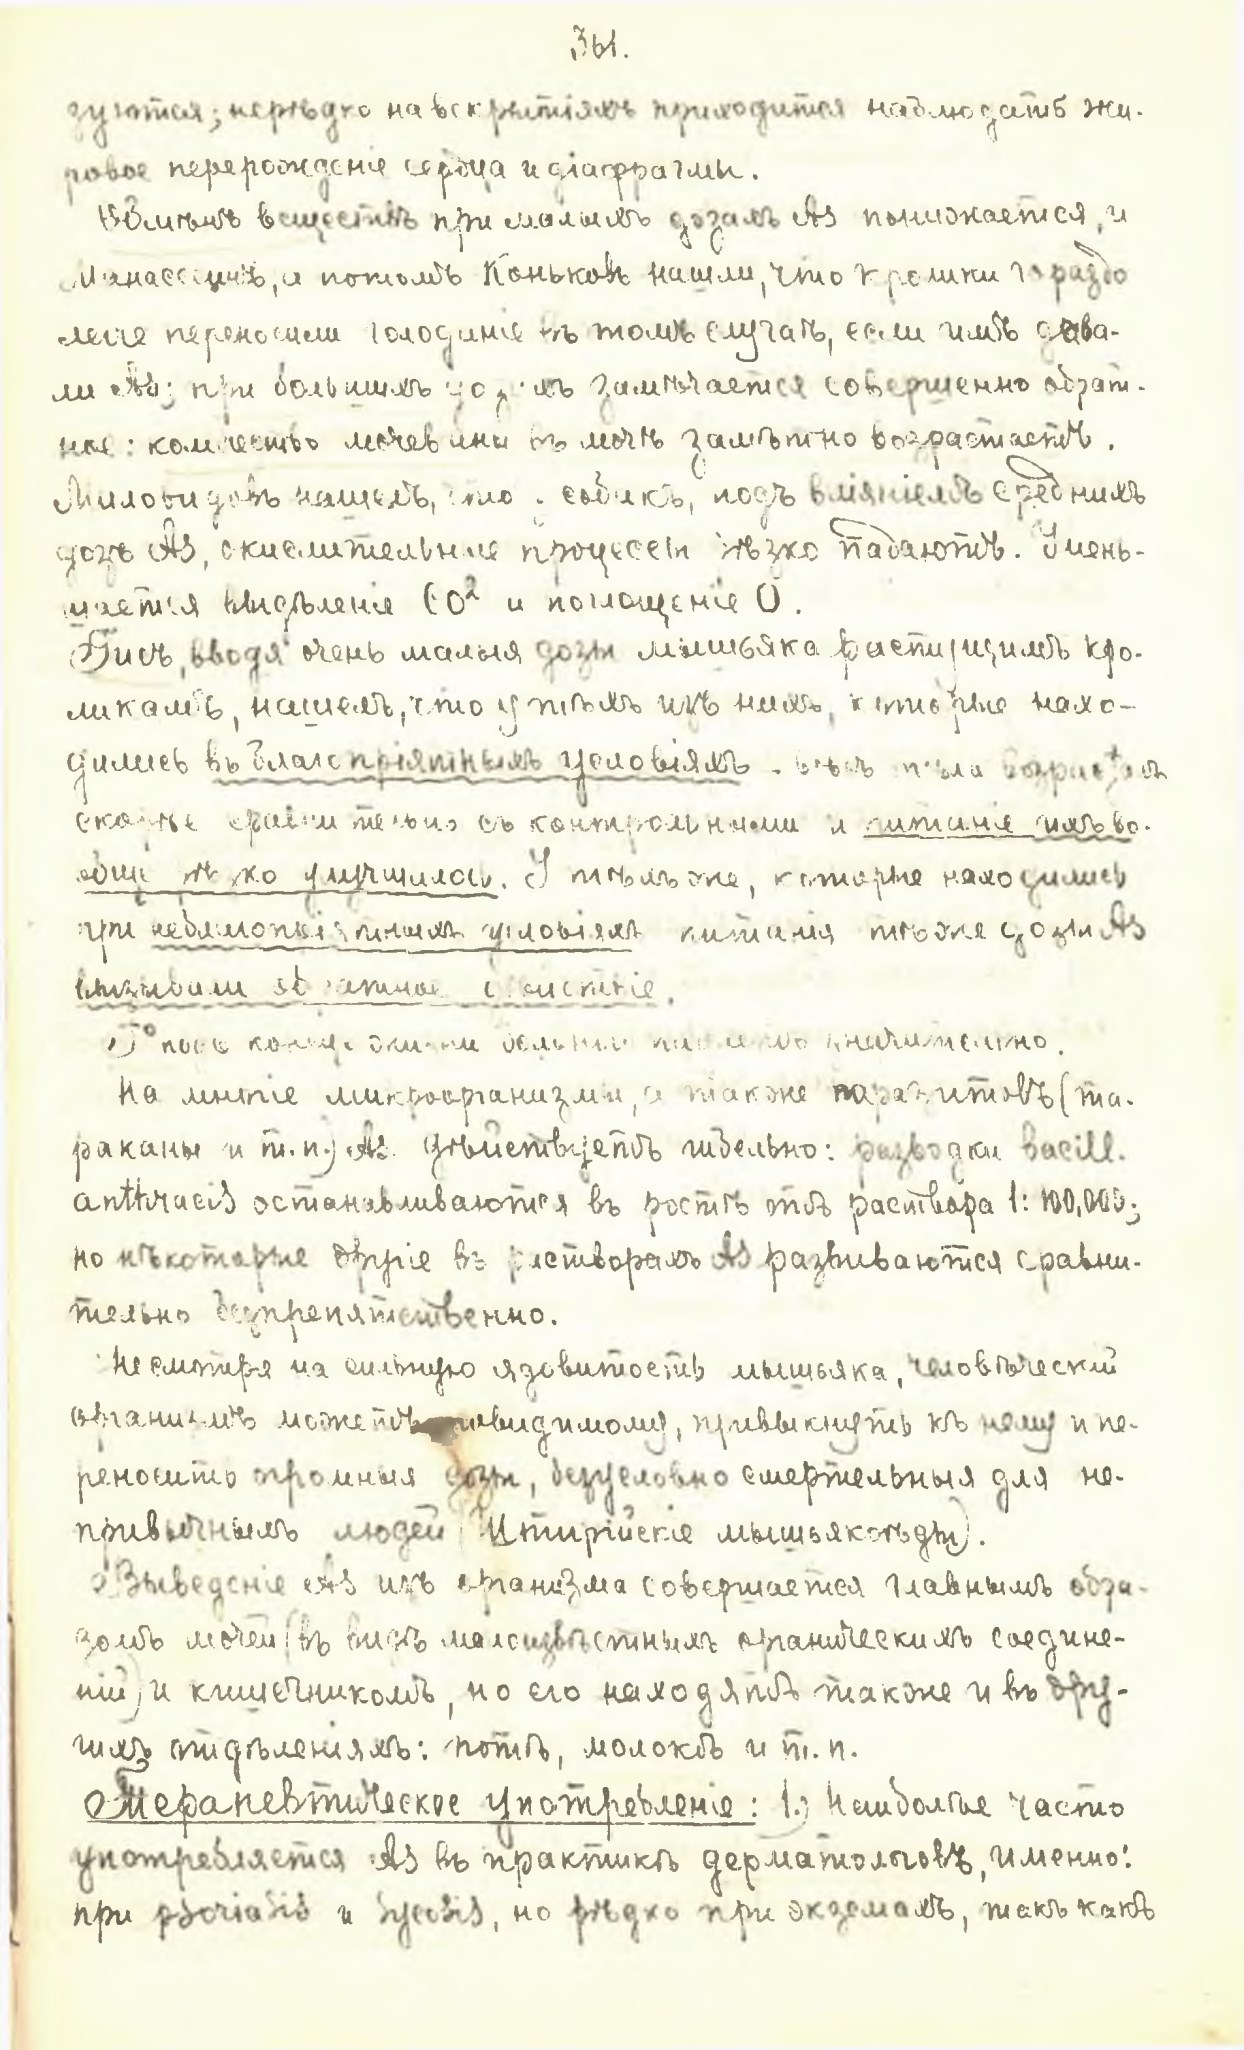 361.
зуются; нерѣдко на вскрытіяхъ приходится наблюдать жи-
ровое перерожденіе сердца и діафрагмы.
Обмѣнъ веществъ при малыхъ дозахъ As понижается, и
Манассеинъ, а потомъ Коньковъ нашли, что кролики гораздо
легче переносили голоданіе въ томъ случаѣ, если имъ дава-
ли As; при большихъ дозахъ замѣчается совершенно обрат-
ное: количество мочевины въ мочѣ замѣтно возрастаетъ.
Миловидовъ нашелъ, что у собакъ, подъ вліяніемъ среднихъ
дозъ As, окислительные процессы рѣзко падаютъ. Умень-
шается выдѣленіе CO² и поглощеніе O.
Гисъ, вводя очень малыя дозы мышьяка растущимъ кро-
ликамъ, нашелъ, что у тѣхъ изъ нихъ, которые нахо-
дились въ благопріятныхъ условіяхъ вѣсъ тѣла возрасталъ
скорѣе сравнительно съ контрольными и питаніе ихъ во-
обще рѣзко улучшилось. У тѣхъ же, которые находились
при неблагопріятныхъ условіяхъ питанія тѣ же дозы As
вызывали обратное дѣйствіе.
T° подъ конецъ жизни больных значительно.
На многіе микроорганизмы, а также паразитовъ (та-
раканы и т.п.) As дѣйствуетъ гибельно: разводки bacill.
anthracis останавливаются въ ростѣ отъ раствора 1:100,000;
но нѣкоторые другіе въ растворахъ As развиваются сравни-
тельно безпрепятственно.
Несмотря на сильную ядовитость мышьяка, человѣческій
организмъ можетъ повидимому, привыкнуть къ нему и пе-
реносить огромныя дозы, безусловно смертельныя для не-
привычныхъ людей (Штирійскіе мышьякоѣды).
Выведеніе As изъ организма совершается главнымъ обра-
зомъ мочей (въ видѣ малоизвѣстныхъ органическихъ соедине-
ній) и кишечникомъ, но его находятъ также и въ дру-
гихъ отдѣленіяхъ: потѣ, молокѣ и т.п.
Терапевтическое употребленіе: 1.) Наиболѣе часто
употребляется As въ практикѣ дерматологовъ, именно:
при psoriasis и sycosis, но рѣдко при экземахъ, такъ какъ